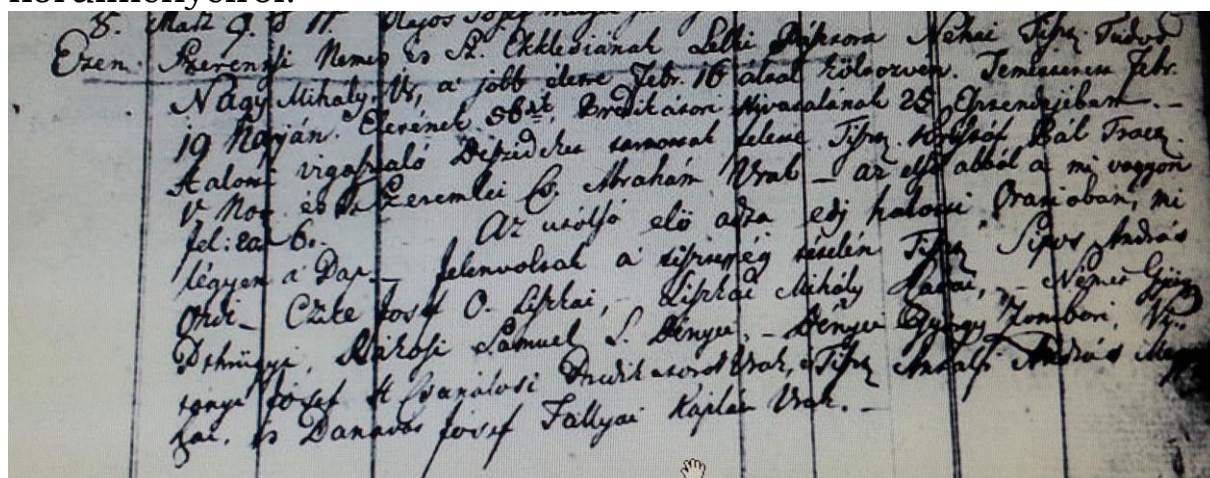 körülményeiről.
8. Mart. 9. d 11.
Ezen Szerentsi Nemes és Sz. Ekklesiának Lelki Pásztora Néhai Tiszt. Tudós
Nagy Mihály Úr, a' jobb életre Febr. 16 által költözvén. Temettetett Febr.
19 Napján. Életének 56dik Prédikátori Hivatalának 25 Esztendejében. –
Halotti vigasztaló Beszédeket tartottak felette Tiszt. Pál
V. Not. és Szeremlei Cs. Ábrahám Urak – az első abból a mi vagyon
fel: 6. Az utólsó elő adta edj halotti Orátzióban, mi
légyen a Pap – Jelenvoltak a tisztesség tételén Tiszt. Sipos András
Ondi – Czeke Josef O. Liszkai, Liszkai Mihály – Német György
Rákosi Sámuel S. Bényei, – Bényei György Zombori,
Josef H Csanálosi Prédikátorok Urak, Tiszt Antalfi András
és Josef Tállyai Káplán Urak. –